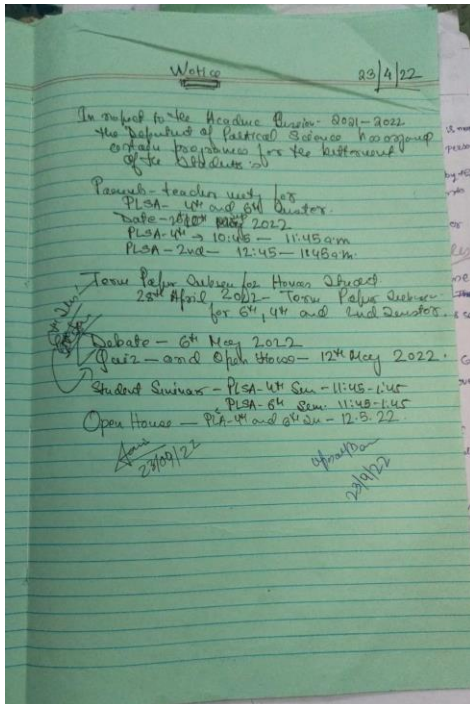 Notice 23/4/22
In respect to the Academic Session - 2021-2022
the Department of Political Science has organised
certain programmes for the betterment
of the Students :-
Parents-teacher meet for
PLSA - 4th and 6th Semester.
Date - 2022
PLSA - 4th → 10:45 - 11:45 am
PLSA - 2nd - 12:45 - 1:45 am.
Term Paper for Honors Student
28th April 2022 - Term Paper
for 6th, 4th and 2nd Semester.
Debate - 6th May 2022
Quiz - and Open House - 12th May 2022.
Student Seminar - PLSA - 4th Sem - 11:45 - 1:45
PLSA - 6th Sem. 11:45 - 1:45
Open House - PLA - 4th and 6th Se - 12.5.22.
23/9/22